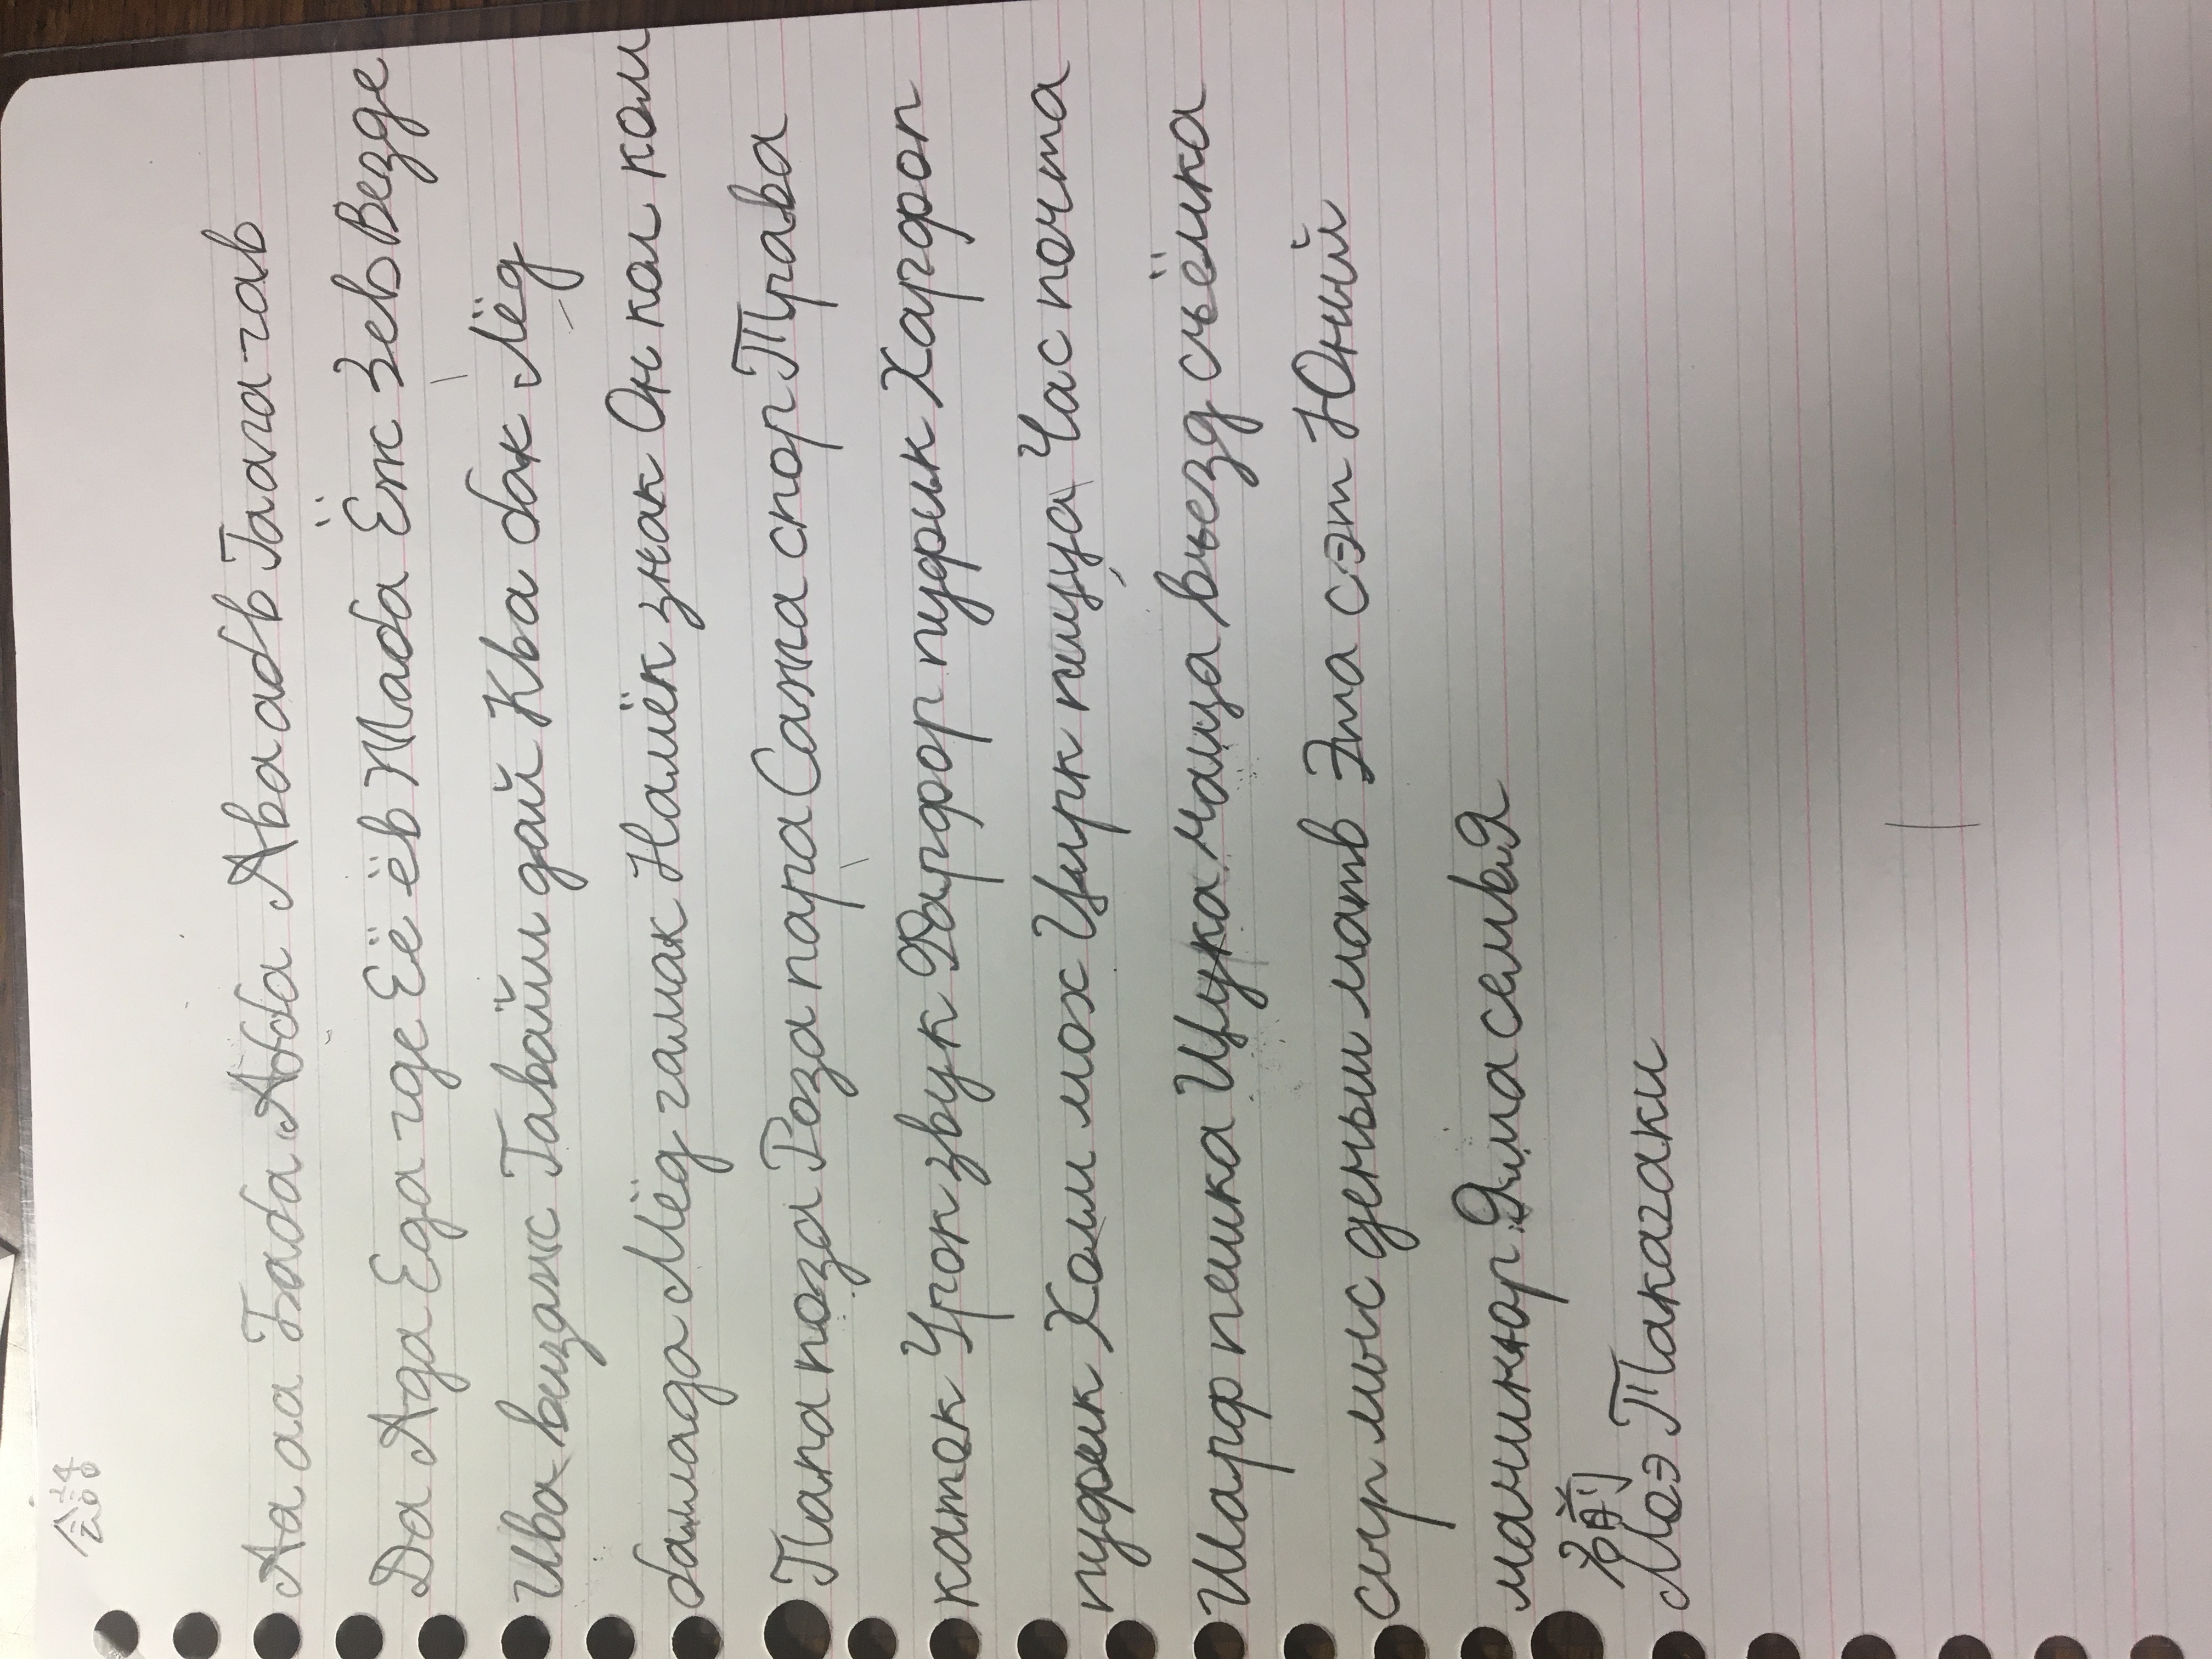 会話
Аа аа Баба Абба Ава абв Гаага гав
Да Ада Еда где Её ёв Жаба Ёж Зев Везде
Ива визаж Гавайи дай Ква бак Лёд
баллада Мёд гамак Намёк знак Он кол ком
Папа поза Роза пара Сажа спор Трава
каток Урок звук Фарфор пуфик Харфоп
пуфик Холм мох Цирк пицца Час почта
Шарф пешка Щука чаща въезд съёмка
сыр мыс деньги матв Эта сэт Юний
маникюр Яма семья
名前
Моэ Такагаки